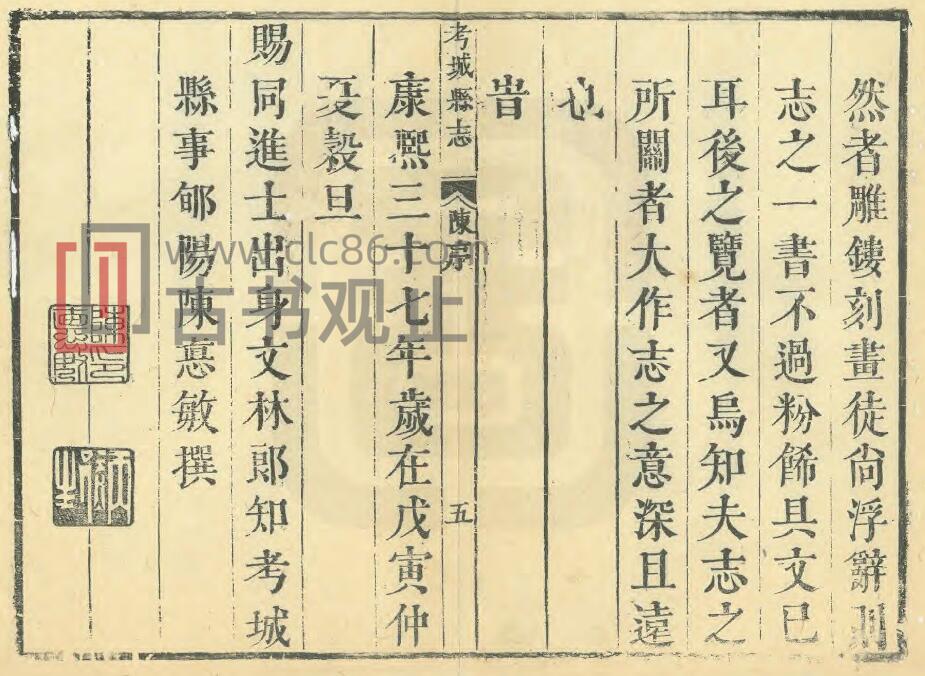 然者雕鏤刻畫徒尙浮辭則
志之一書不過粉餙具文已
耳後之覽者又烏知夫志之
所關者大作志之意深且遠
也
旹
考城縣志 陳序 五
康熙三十七年歲在戊寅仲
夏穀旦
賜同進士出身文林郎知考城
縣事郇陽陳悳敏撰
www.clc86.com
古书观止